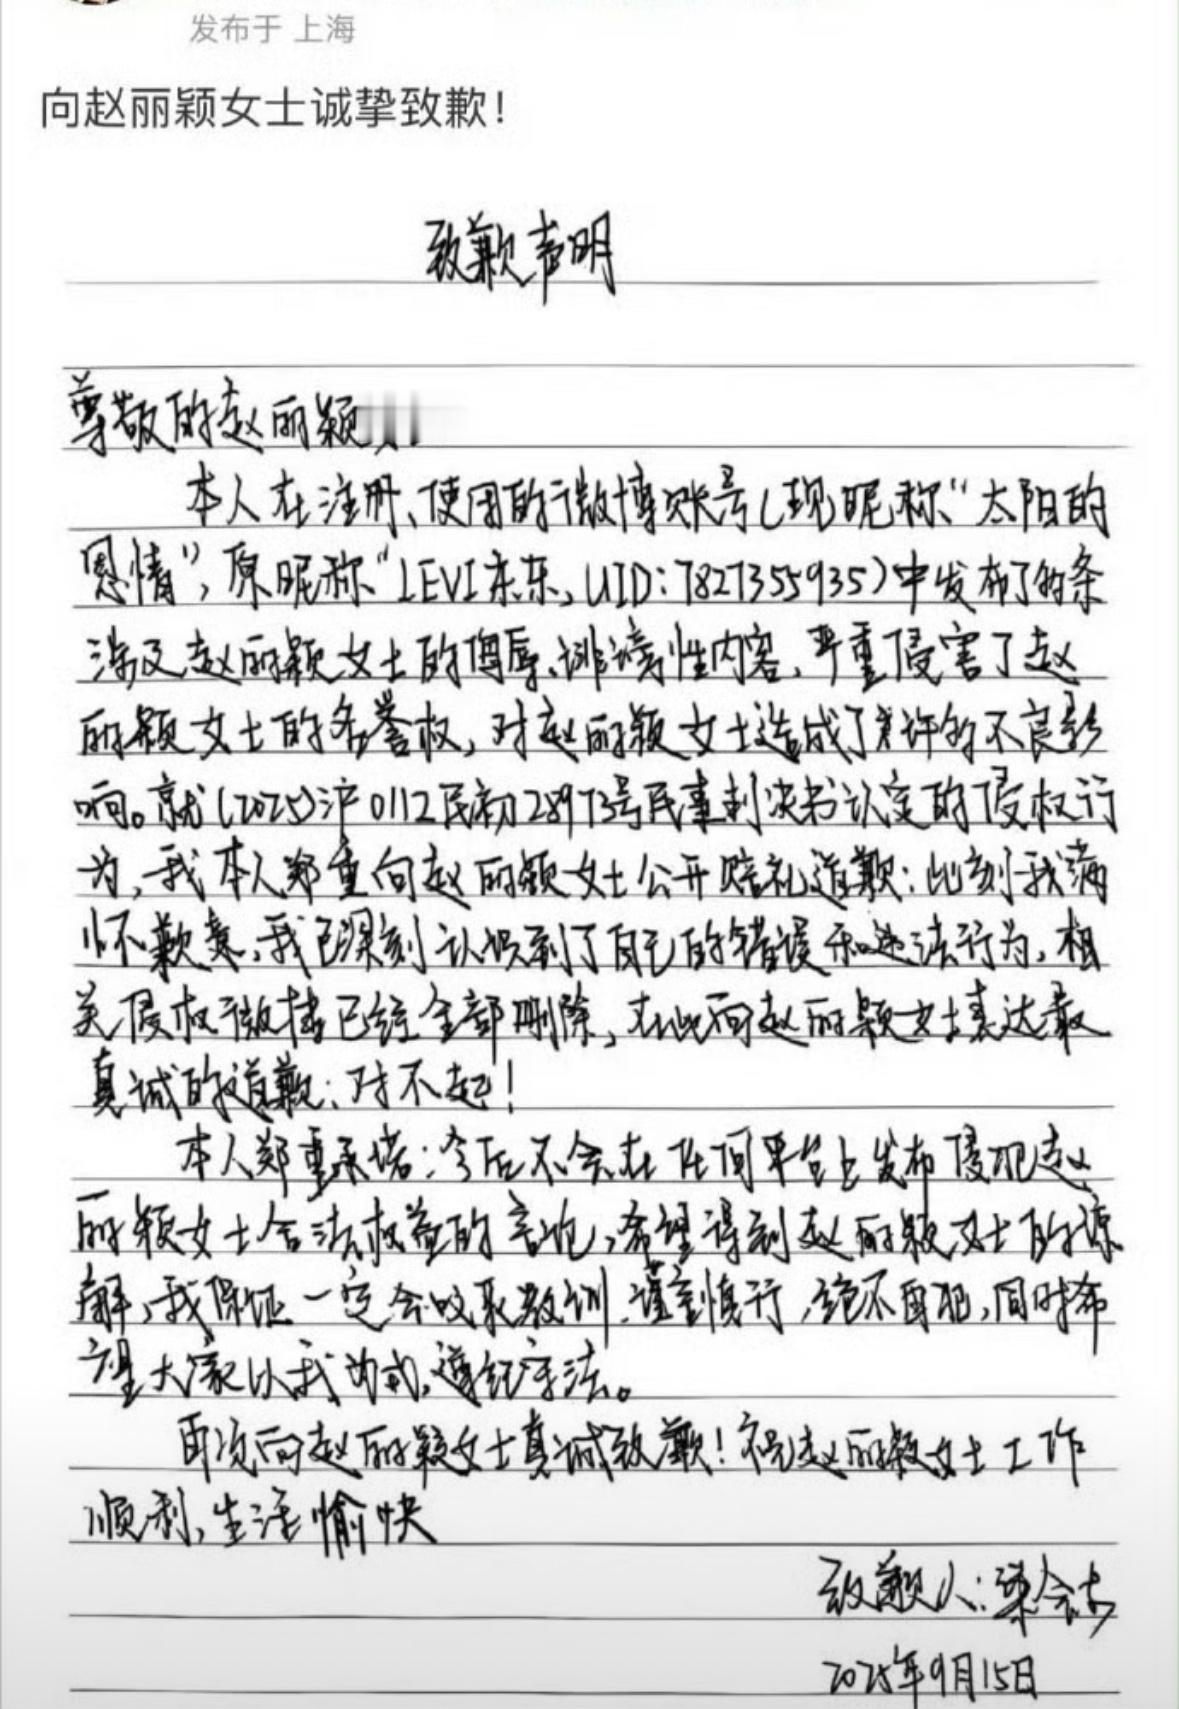 发布于 上海
向赵丽颖女士诚挚致歉！
致歉声明
尊敬的赵丽颖
本人在注册、使用的微博账号(现昵称“太阳的
恩情”，原昵称“LEVI东东，UID：7827355935)中发布了的条
涉及赵丽颖女士的侮辱、诽谤性内容，严重侵害了赵
丽颖女士的名誉权，对赵丽颖女士造成了许的不良影
响。就(2025)沪0112民初28973号民事判决书认定的侵权行
为，我本人郑重向赵丽颖女士公开赔礼道歉：此刻我满
怀歉意，我已深刻认识到了自己的错误和违法行为，相
关侵权微博已经全部删除，在此向赵丽颖女士表达最
真诚的道歉：对不起！
本人郑重承诺：今后不会在任何平台上发布侵犯赵
丽颖女士合法权益的言论，希望得到赵丽颖女士的谅
解，我保证一定会吸取教训，谨言慎行，绝不再犯，同时希
望大家以我为戒，遵纪守法。
再次向赵丽颖女士真诚致歉！祝赵丽颖女士工作
顺利，生活愉快
致歉人：梁
2025年9月15日